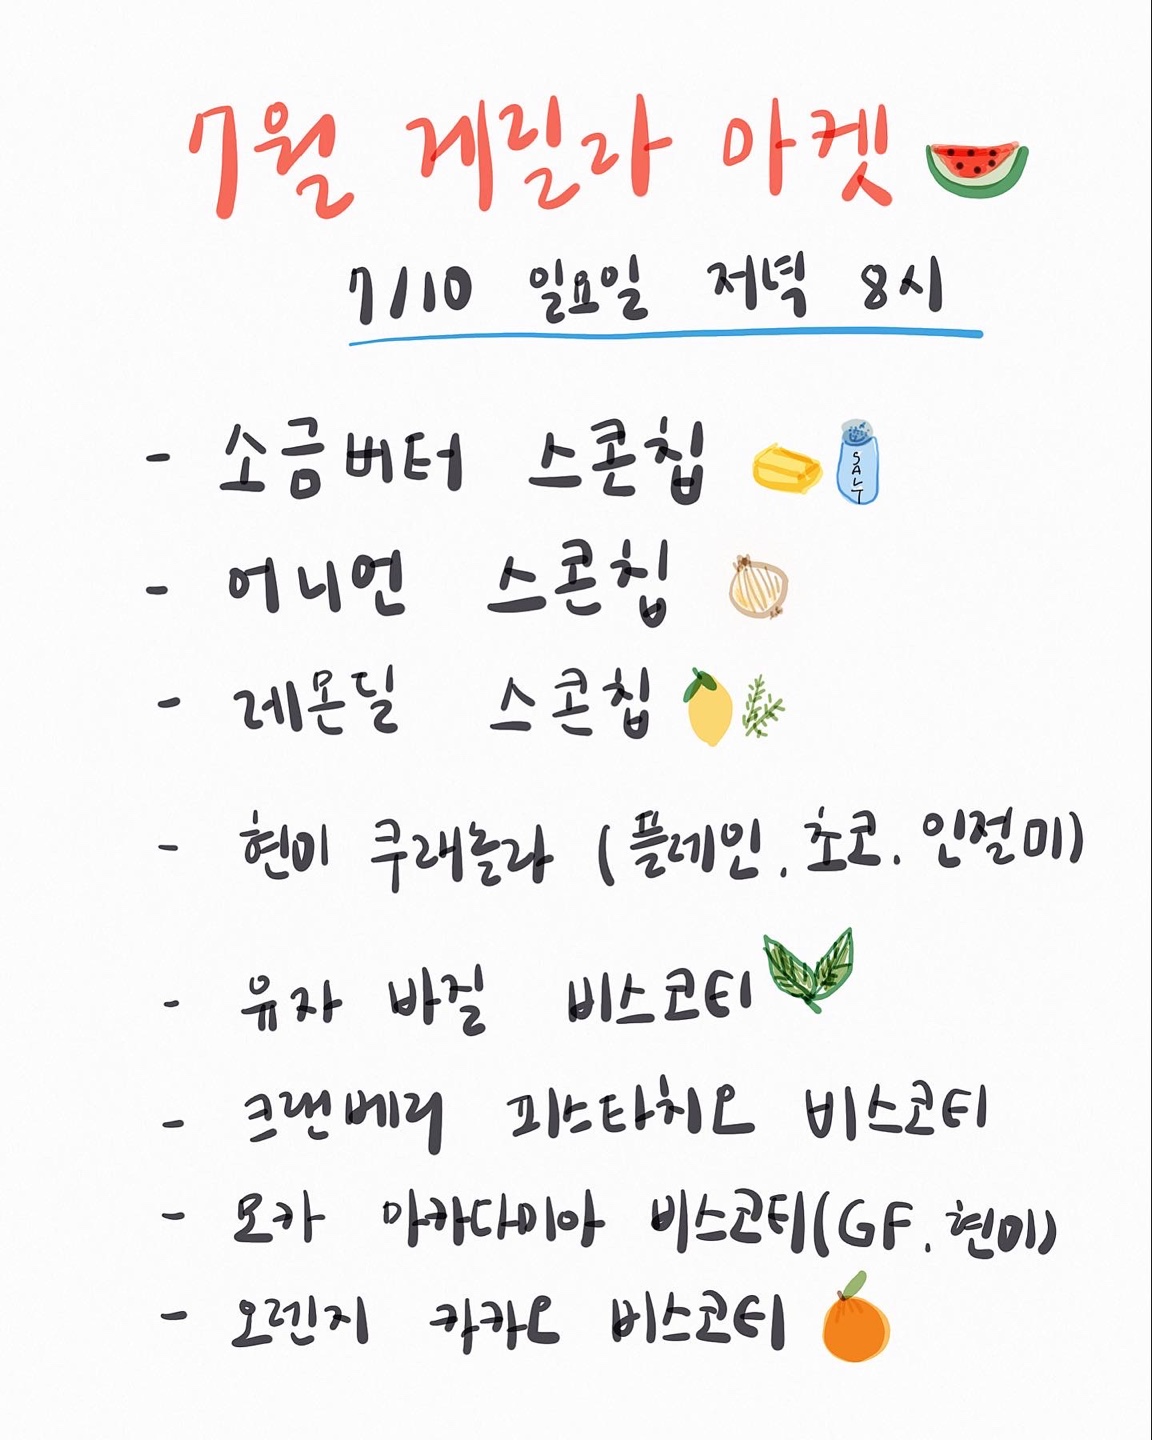 7월 게릴라 마켓
7/10 일요일 저녁 8시
- 소금버터 스콘칩
SALT
- 어니언 스콘칩
- 레몬딜 스콘칩
- 현미 쿠래놀라 (플레인. 초코. 인절미)
- 유자 바질 비스코티
- 크랜베리 피스타치오 비스코티
- 모카 마카다미아 비스코티(GF. 현미)
- 오렌지 카카오 비스코티